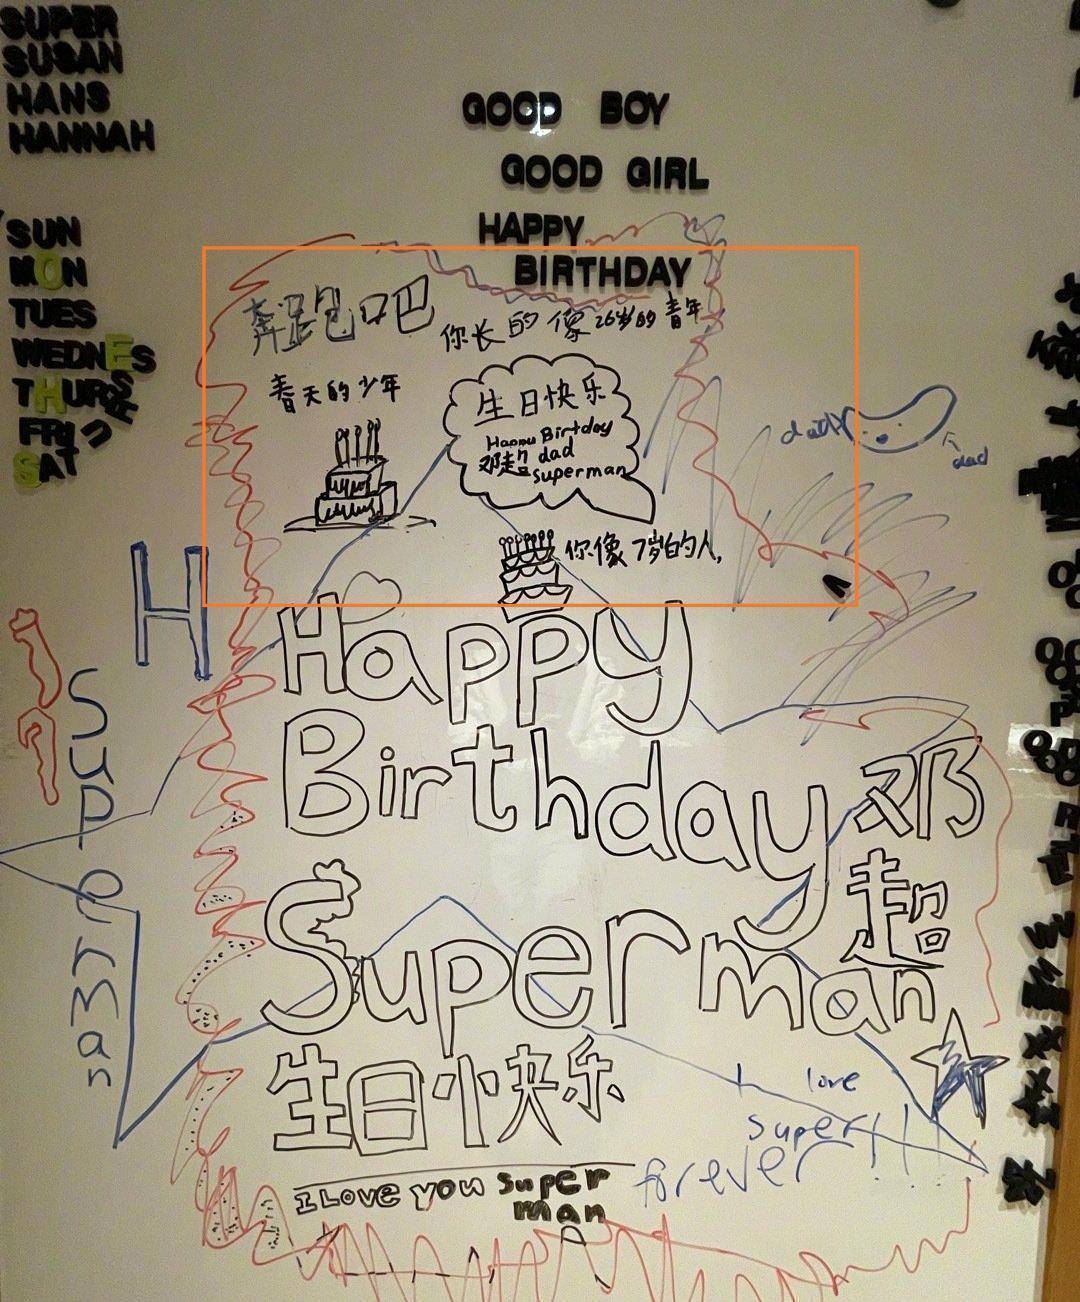 SUPER
SUSAN
HANS
HANNAH
GOOD BOY
GOOD GIRL
HAPPY
BIRTHDAY
SUN
MON
TUES
WEDNES
THURS
FRI
SAT
奔跑吧
你长的像26岁的青年
春天的少年
生日快乐
Happy Birthday
邓超 dad
superman
你像7岁的人,
daddy
dad
H
Superman
Happy
Birthday 邓
超
Superman
生日快乐
I love
super!!!
forever
I Love you super
man